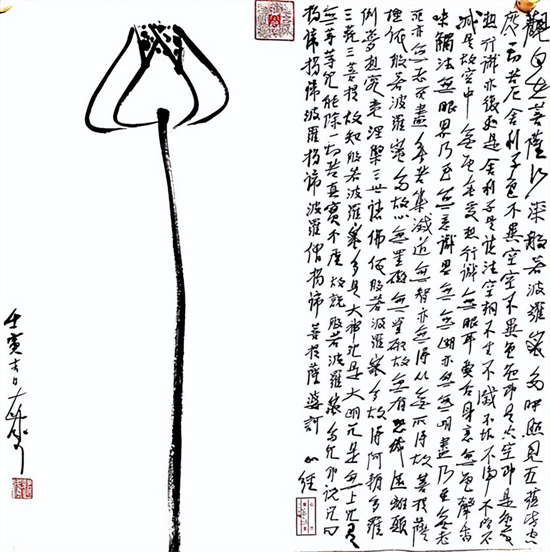 觀自在菩薩行深般若波羅蜜多時照見五蘊皆空
度一切苦厄舍利子色不異空空不異色色即是空空即是色受
想行識亦復如是舍利子是諸法空相不生不滅不垢不淨不增不
減是故空中無色無受想行識無眼耳鼻舌身意無色聲香
味觸法無眼界乃至無意識界無無明亦無無明盡乃至無老
死亦無老死盡無苦集滅道無智亦無得以無所得故菩提薩
埵依般若波羅蜜多故心無罣礙無罣礙故無有恐怖遠離顛
倒夢想究竟涅槃三世諸佛依般若波羅蜜多故得阿耨多羅
三藐三菩提故知般若波羅蜜多是大神咒是大明咒是無上咒是
無等等咒能除一切苦真實不虛故說般若波羅蜜多咒即說咒曰
揭諦揭諦波羅揭諦波羅僧揭諦菩提薩婆訶 心經
壬寅吉日